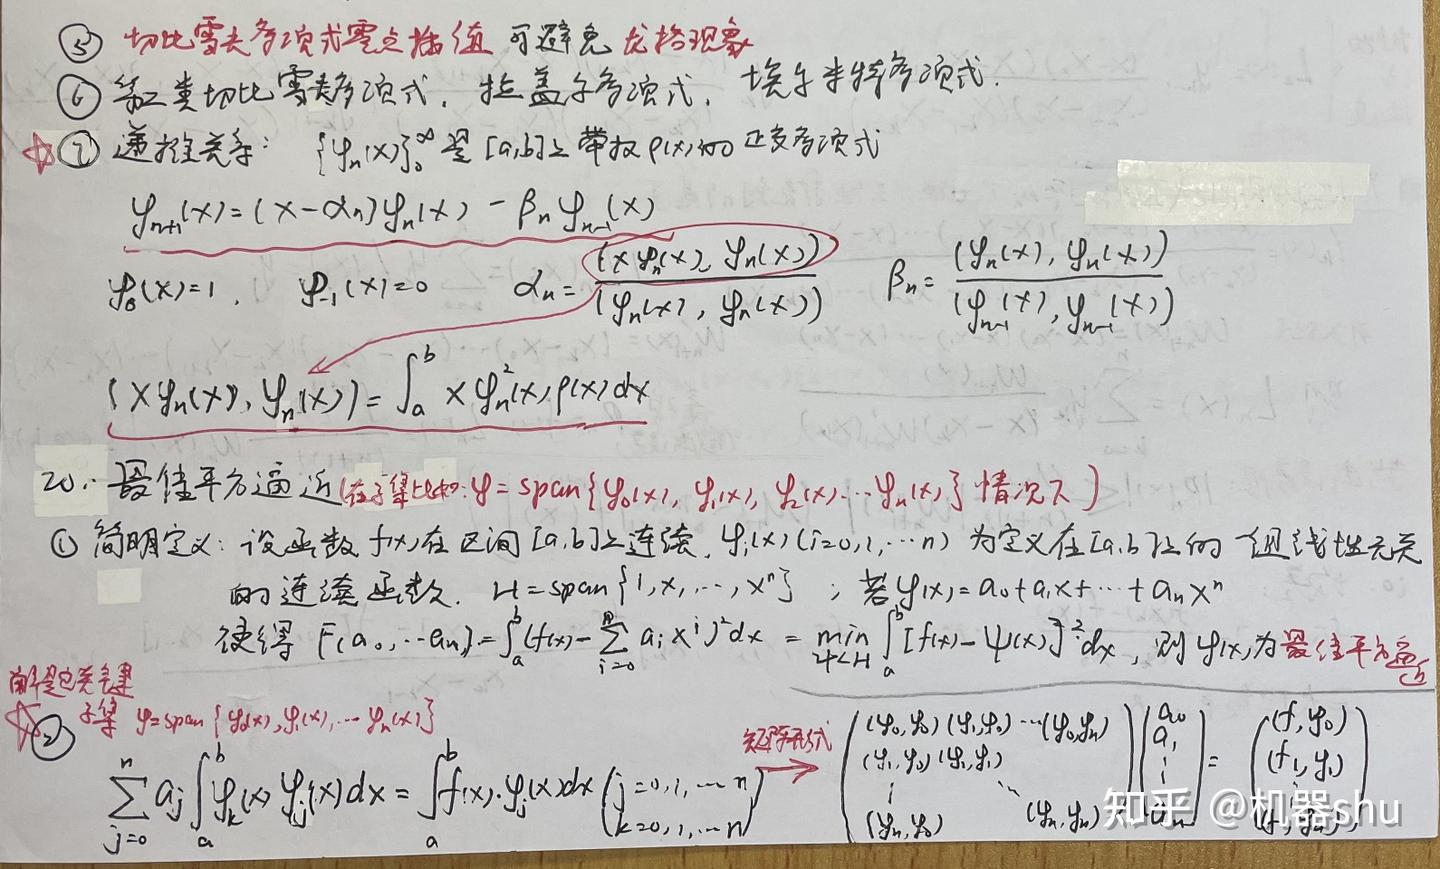 ⑤ 切比雪夫多项式零点插值 可避免 龙格现象
⑥ 第二类切比雪夫多项式, 拉盖尔多项式, 埃尔米特多项式.
☆⑦ 递推关系: {φn(x)}₀^∞ 是 [a,b]上 带权 ρ(x)的 正交多项式
φn+1(x)=(x-αn)φn(x) - βnφn-1(x)
φ0(x)=1, φ-1(x)=0 αn= (xφn(x), φn(x)) / (φn(x), φn(x)) βn= (φn(x), φn(x)) / (φn-1(x), φn-1(x))
(xφn(x), φn(x))=∫_a^b xφn²(x)ρ(x)dx
20. 最佳平方逼近(在子集比如: φ=span{φ0(x), φ1(x), φ2(x)…φn(x)}情况下)
① 简明定义: 设函数 f(x)在区间[a,b]上连续, φi(x)(i=0,1,…n) 为定义在[a,b]上的 一组线性无关
的连续函数. H=span{1,x,…,xⁿ} ; 若φ(x)=a0+a1x+…+anxⁿ
使得 F(a0,…an)=∫_a^b(f(x)-∑_{i=0}^n ai xⁱ)²dx = min_{ψ∈H}∫_a^b[f(x)-ψ(x)]²dx, 则φ(x)为最佳平方逼近
解题关键
☆② 子集 φ=span{φ0(x),φ1(x),…φn(x)}
∑_{j=0}^n aj∫_a^b φk(x)φj(x)dx=∫_a^b f(x)·φj(x)dx (j=0,1,…n k=0,1,…n) 矩阵形式→ ((φ0,φ0)(φ1,φ0)…(φ0,φn) (φ1,φ0)(φ1,φ1) ⋮ ⋱ (φn,φ0) (φn,φn)) (a0 a1 ⋮ an) = ((f,φ0) (f,φ1) ⋮ (f,φn))
知乎 @机器shu